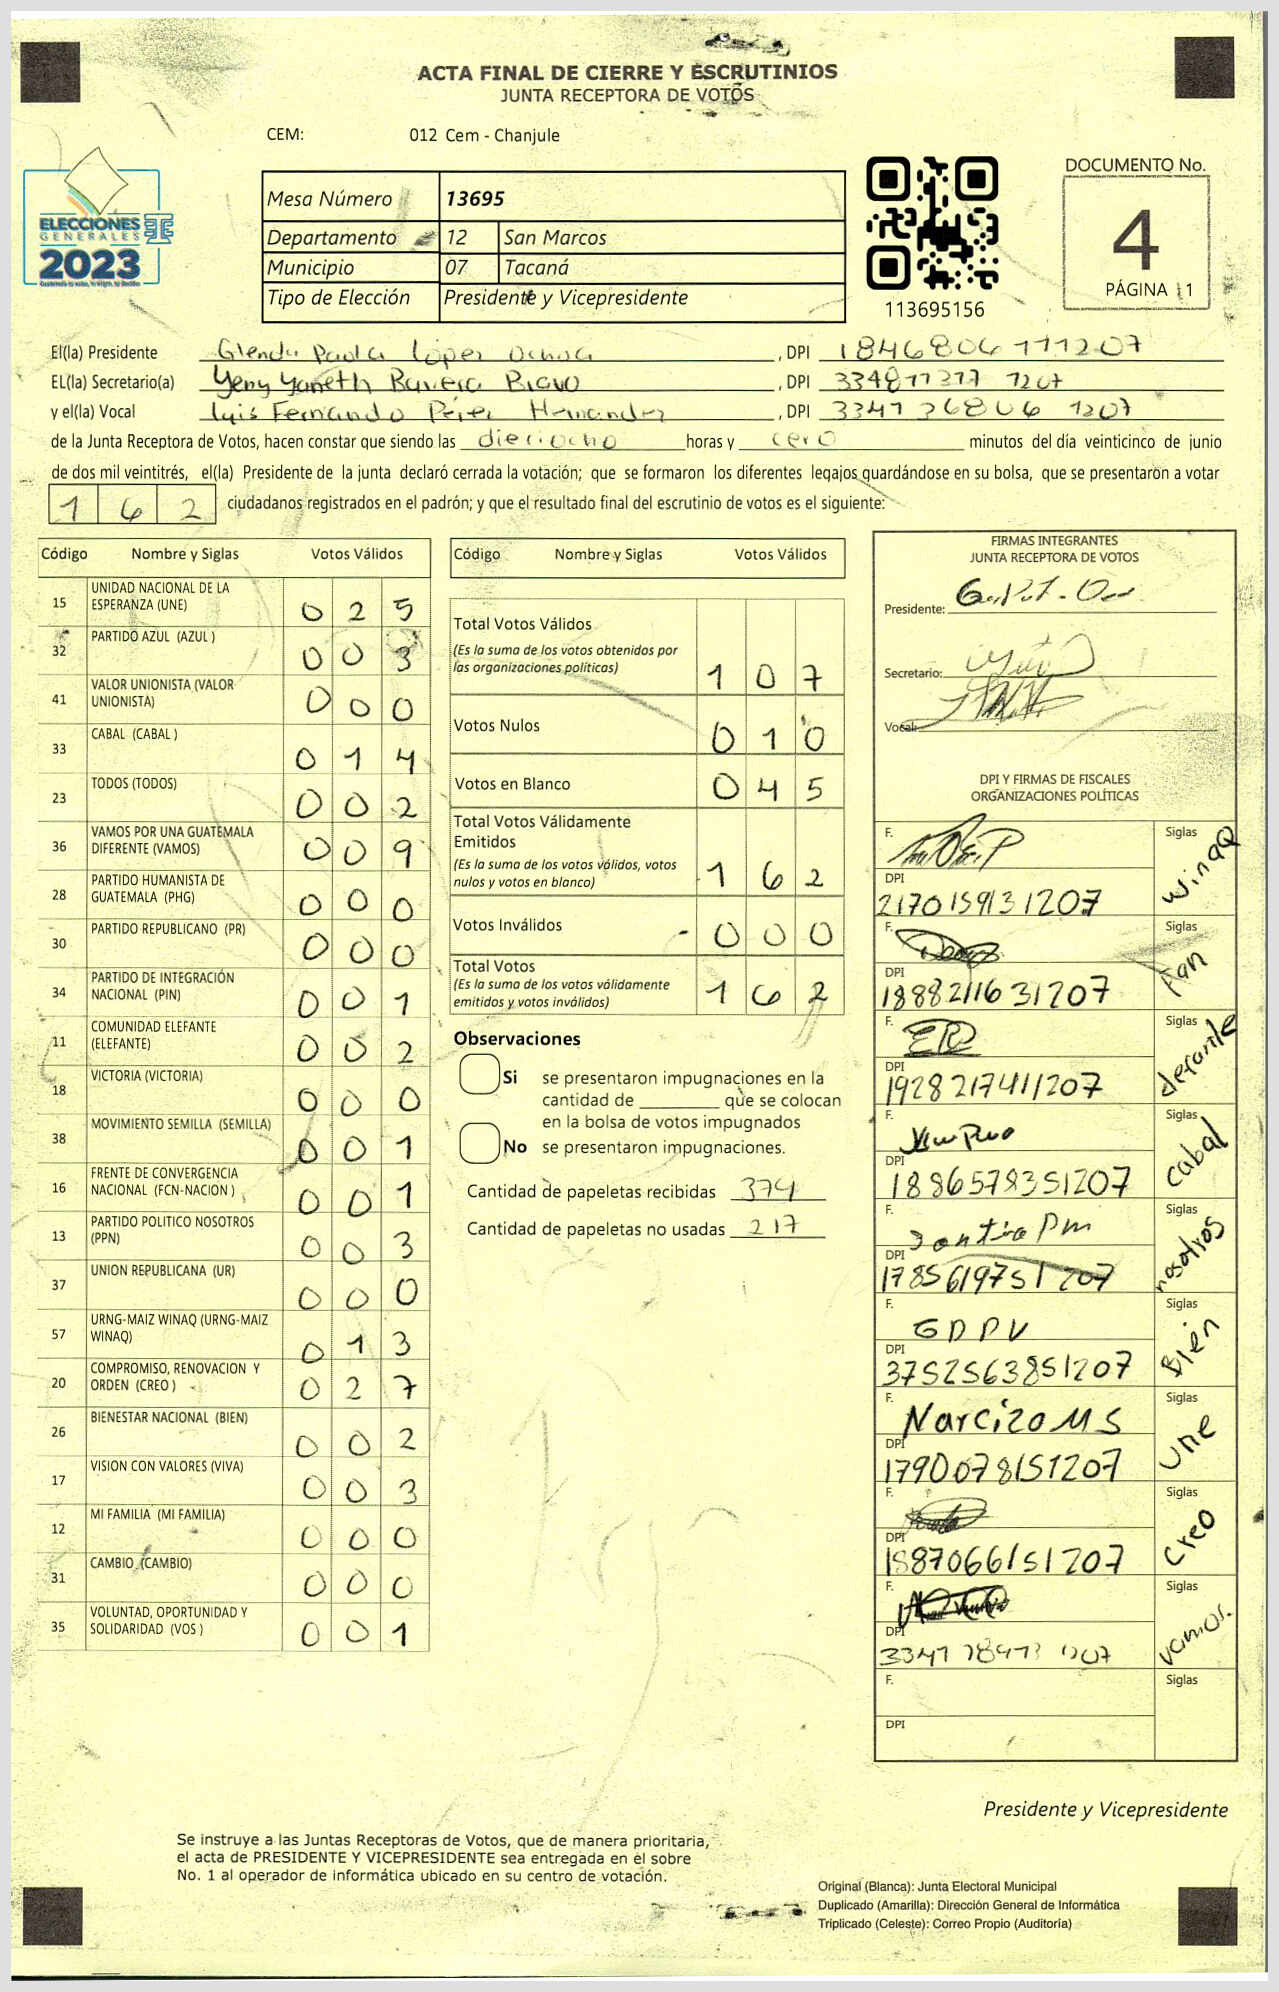 ACTA FINAL DE CIERRE Y ESCRUTINIOS
JUNTA RECEPTORA DE VOTOS
CEM: 012 Cem - Chanjule
ELECCIONES
GENERALES
2023
Mesa Número 13695
Departamento 12 San Marcos
Municipio 07 Tacaná
Tipo de Elección Presidente y Vicepresidente
113695156
DOCUMENTO No.
4
PÁGINA 1
El(la) Presidente Glenda Paola López Ochoa , DPI 1846806111207
EL(la) Secretario(a) Yeny Yaneth Bravo , DPI 1207
y el(la) Vocal Luis Fernando Pérez Hernandez , DPI 3341 36806 1207
de la Junta Receptora de Votos, hacen constar que siendo las dieciocho horas y cero minutos del día veinticinco de junio
de dos mil veintitrés, el(la) Presidente de la junta declaró cerrada la votación; que se formaron los diferentes legajos guardándose en su bolsa, que se presentaron a votar
162 ciudadanos registrados en el padrón; y que el resultado final del escrutinio de votos es el siguiente:
Código Nombre y Siglas Votos Válidos
15 UNIDAD NACIONAL DE LA
ESPERANZA (UNE) 0 2 5
32 PARTIDO AZUL (AZUL ) 0 0 3
41 VALOR UNIONISTA (VALOR
UNIONISTA) 0 0 0
33 CABAL (CABAL ) 0 1 4
23 TODOS (TODOS) 0 0 2
36 VAMOS POR UNA GUATEMALA
DIFERENTE (VAMOS) 0 0 9
28 PARTIDO HUMANISTA DE
GUATEMALA (PHG) 0 0 0
30 PARTIDO REPUBLICANO (PR) 0 0 0
34 PARTIDO DE INTEGRACIÓN
NACIONAL (PIN) 0 0 1
11 COMUNIDAD ELEFANTE
(ELEFANTE) 0 0 2
18 VICTORIA (VICTORIA) 0 0 0
38 MOVIMIENTO SEMILLA (SEMILLA) 0 0 1
16 FRENTE DE CONVERGENCIA
NACIONAL (FCN-NACION ) 0 0 1
13 PARTIDO POLITICO NOSOTROS
(PPN) 0 0 3
37 UNION REPUBLICANA (UR) 0 0 0
57 URNG-MAIZ WINAQ (URNG-MAIZ
WINAQ) 0 1 3
20 COMPROMISO, RENOVACION Y
ORDEN (CREO ) 0 2 7
26 BIENESTAR NACIONAL (BIEN) 0 0 2
17 VISION CON VALORES (VIVA) 0 0 3
12 MI FAMILIA (MI FAMILIA) 0 0 0
31 CAMBIO (CAMBIO) 0 0 0
35 VOLUNTAD, OPORTUNIDAD Y
SOLIDARIDAD (VOS ) 0 0 1
Código Nombre y Siglas Votos Válidos
Total Votos Válidos
(Es la suma de los votos obtenidos por
las organizaciones políticas) 1 0 7
Votos Nulos 0 1 0
Votos en Blanco 0 4 5
Total Votos Válidamente
Emitidos
(Es la suma de los votos válidos, votos
nulos y votos en blanco) 1 6 2
Votos Inválidos 0 0 0
Total Votos
(Es la suma de los votos válidamente
emitidos y votos inválidos) 1 6 2
Observaciones
Si se presentaron impugnaciones en la
cantidad de ________ que se colocan
en la bolsa de votos impugnados
No se presentaron impugnaciones.
Cantidad de papeletas recibidas 374
Cantidad de papeletas no usadas 217
FIRMAS INTEGRANTES
JUNTA RECEPTORA DE VOTOS
Presidente:
Secretario:
Vocal:
DPI Y FIRMAS DE FISCALES
ORGANIZACIONES POLÍTICAS
F. Siglas winaq
DPI 2170159131207
F. Siglas
DPI 1888211631207
F. Siglas
DPI 1928217411207
F. Siglas cabal
DPI 1886578351207
F. Siglas nosotros
DPI 1785619751207
F. GDPV Siglas Bien
DPI 3752563851207
F. Narcizo MS Siglas Une
DPI 1790078151207
F. Siglas Creo
DPI 1887066151207
F. Siglas vamos.
DPI 1207
F. Siglas
DPI
Presidente y Vicepresidente
Se instruye a las Juntas Receptoras de Votos, que de manera prioritaria,
el acta de PRESIDENTE Y VICEPRESIDENTE sea entregada en el sobre
No. 1 al operador de informática ubicado en su centro de votación.
Original (Blanca): Junta Electoral Municipal
Duplicado (Amarilla): Dirección General de Informática
Triplicado (Celeste): Correo Propio (Auditoría)